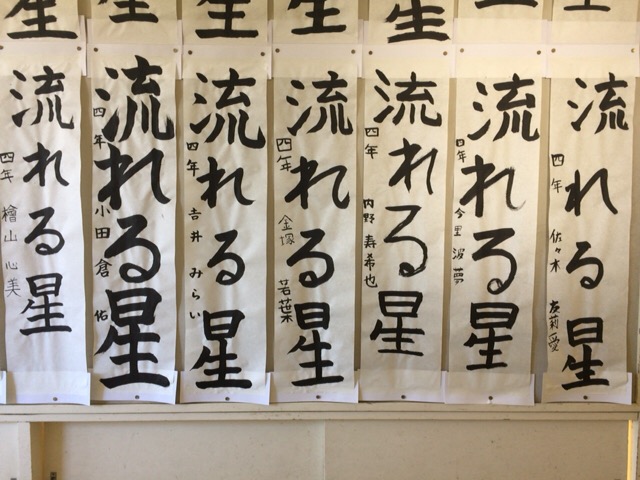 流れる星
四年 佐々木 友莉愛
流れる星
四年 今里 波夢
流れる星
四年 内野 寿希也
流れる星
四年 金塚 若葉
流れる星
四年 吉井 みらい
流れる星
四年 小田倉 佑
流れる星
四年 檜山 心美